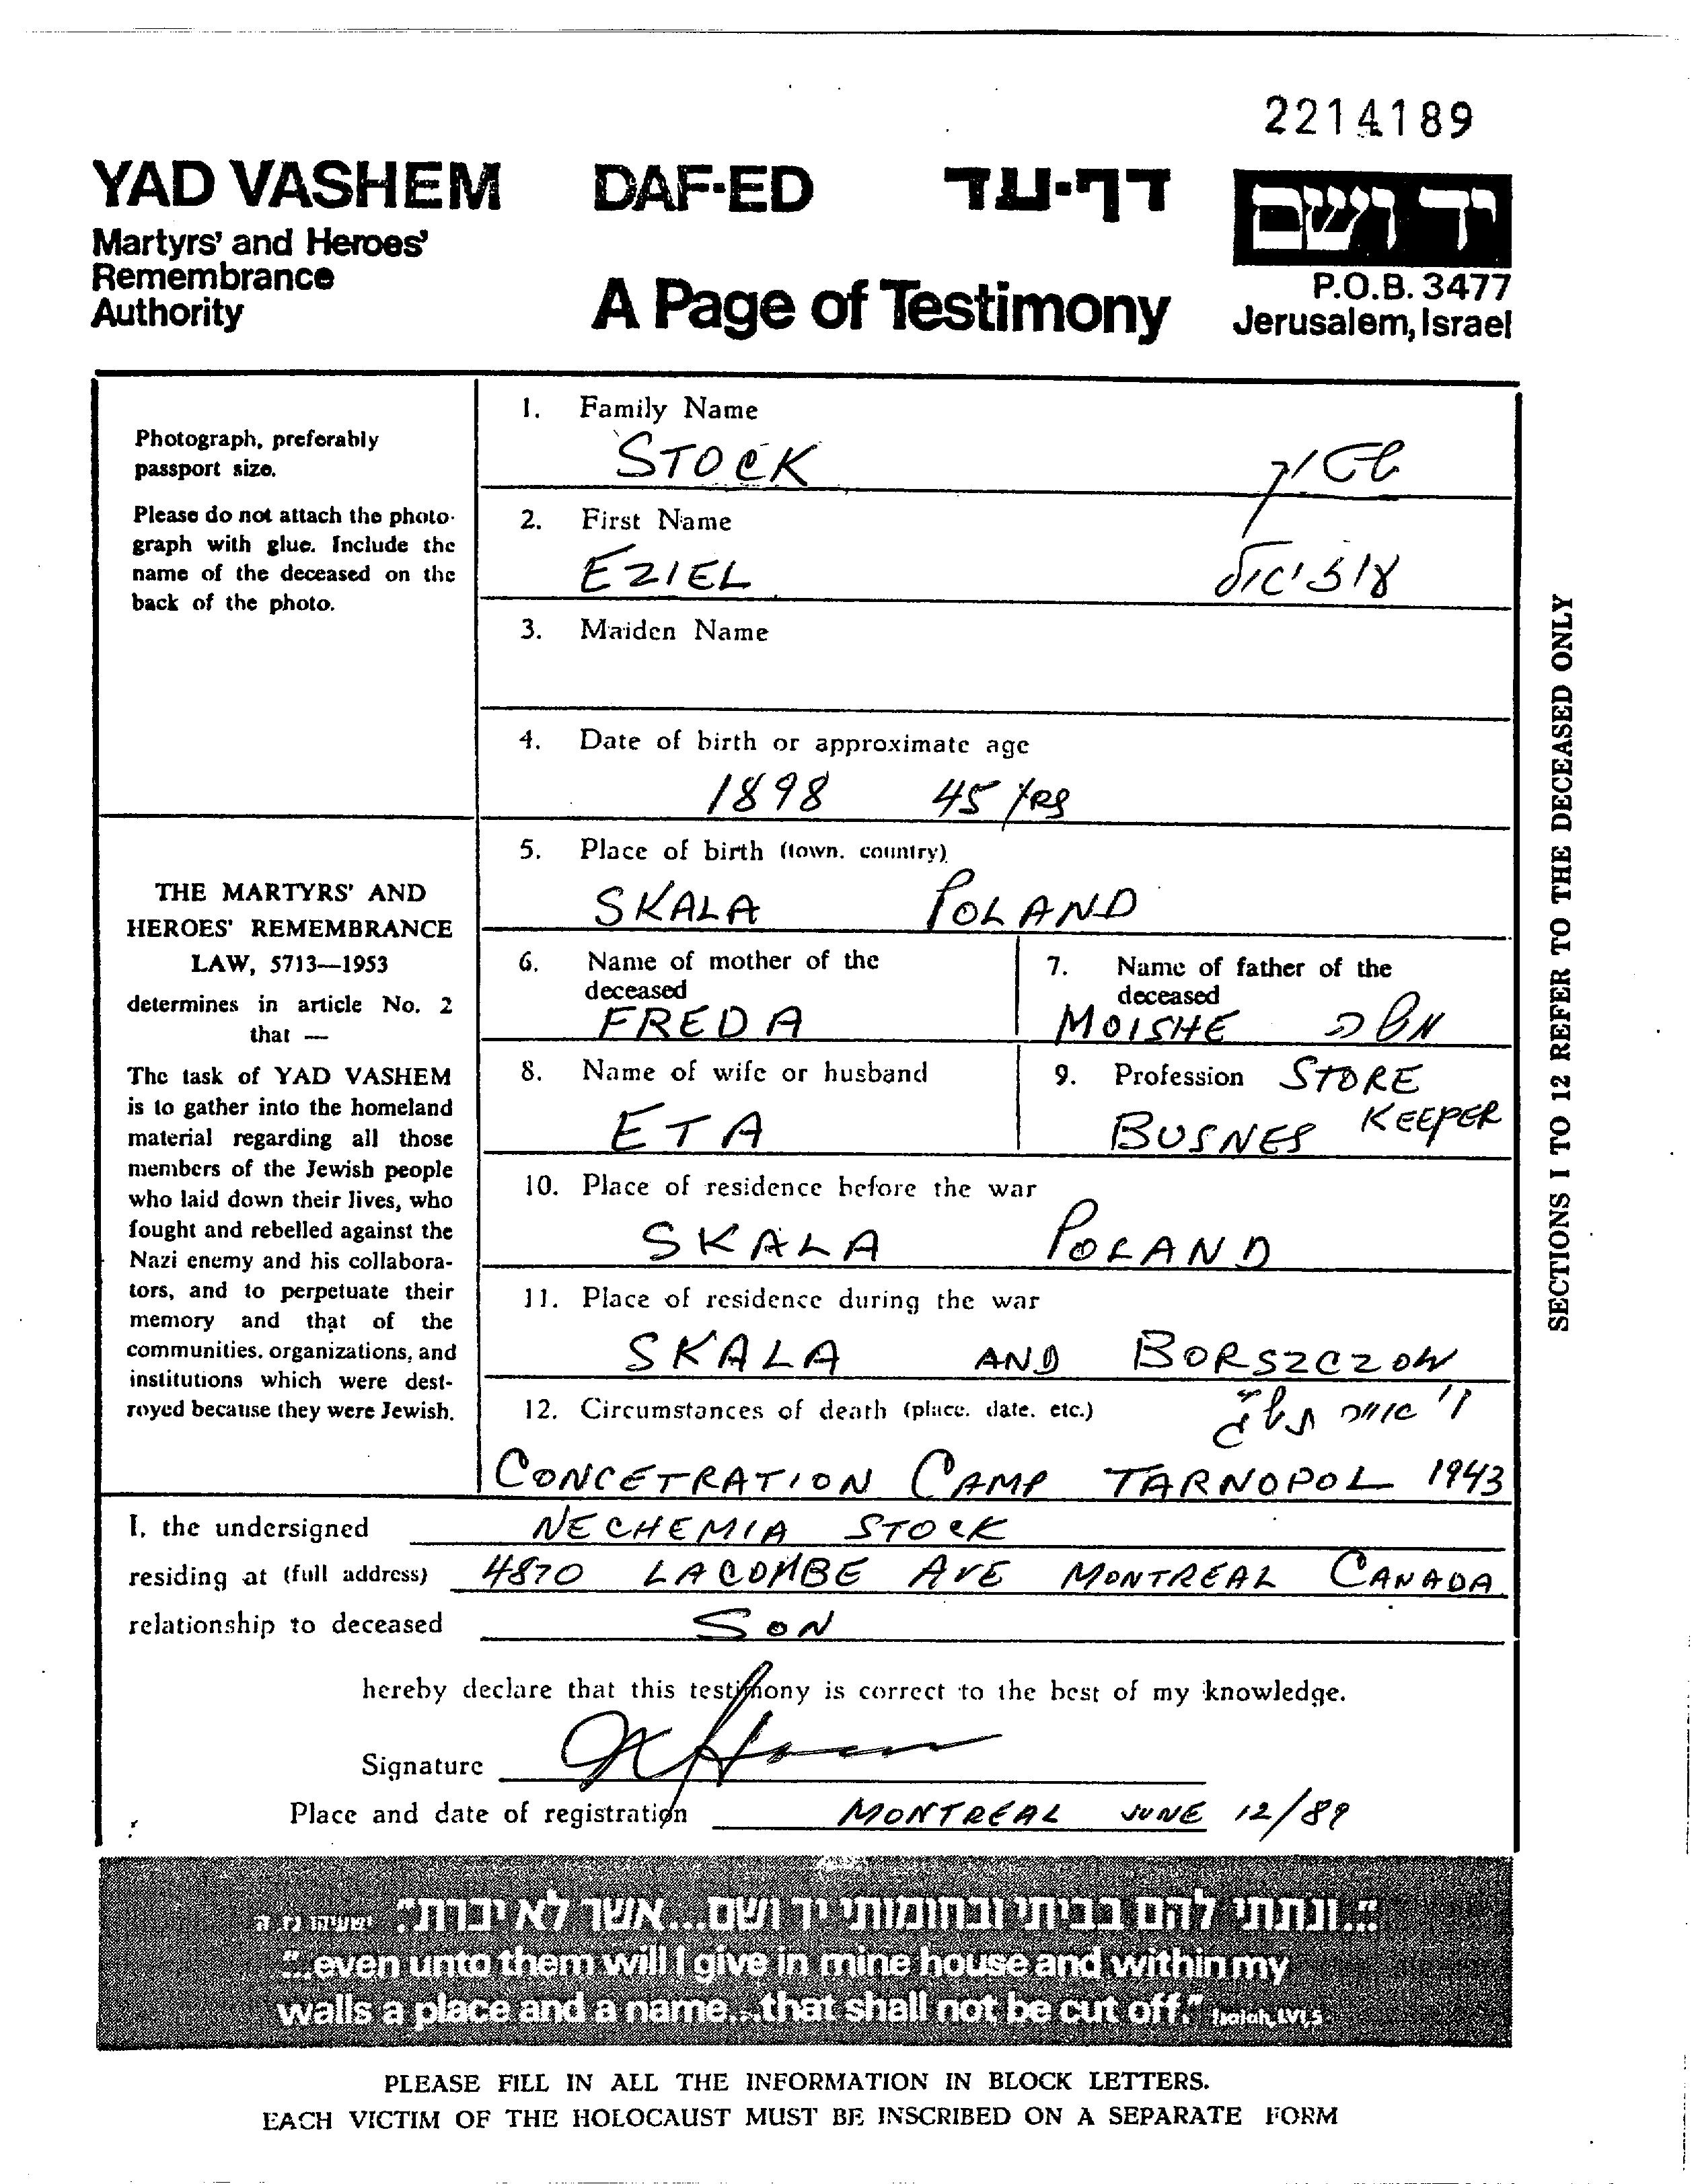 2214189
YAD VASHEM DAF-ED דף-עד יד ושם
Martyrs' and Heroes'
Remembrance
Authority
A Page of Testimony
P.O.B. 3477
Jerusalem, Israel
Photograph, preferably
passport size.
Please do not attach the photo-
graph with glue. Include the
name of the deceased on the
back of the photo.
THE MARTYRS' AND
HEROES' REMEMBRANCE
LAW, 5713—1953
determines in article No. 2
that —
The task of YAD VASHEM
is to gather into the homeland
material regarding all those
members of the Jewish people
who laid down their lives, who
fought and rebelled against the
Nazi enemy and his collabora-
tors, and to perpetuate their
memory and that of the
communities, organizations, and
institutions which were dest-
royed because they were Jewish.
1. Family Name
STOCK שטוק
2. First Name
EZIEL עוזיאל
3. Maiden Name
4. Date of birth or approximate age
1898 45 YRS
5. Place of birth (town, country)
SKALA POLAND
6. Name of mother of the
deceased
FREDA
7. Name of father of the
deceased
MOISHE משה
8. Name of wife or husband
ETA
9. Profession STORE
BUSNES KEEPER
10. Place of residence before the war
SKALA POLAND
11. Place of residence during the war
SKALA AND BORSZCZOW
12. Circumstances of death (place, date, etc.)
CONCETRATION CAMP TARNOPOL 1943
I, the undersigned NECHEMIA STOCK
residing at (full address) 4870 LACOMBE AVE MONTREAL CANADA
relationship to deceased SON
hereby declare that this testimony is correct to the best of my knowledge.
Signature
Place and date of registration MONTREAL JUNE 12/89
SECTIONS 1 TO 12 REFER TO THE DECEASED ONLY
"...ונתתי להם בביתי ובחומותי יד ושם...אשר לא יכרת" ישעיהו נו ה
"...even unto them will I give in mine house and within my
walls a place and a name...that shall not be cut off." Isaiah, LVI,5.
PLEASE FILL IN ALL THE INFORMATION IN BLOCK LETTERS.
EACH VICTIM OF THE HOLOCAUST MUST BE INSCRIBED ON A SEPARATE FORM